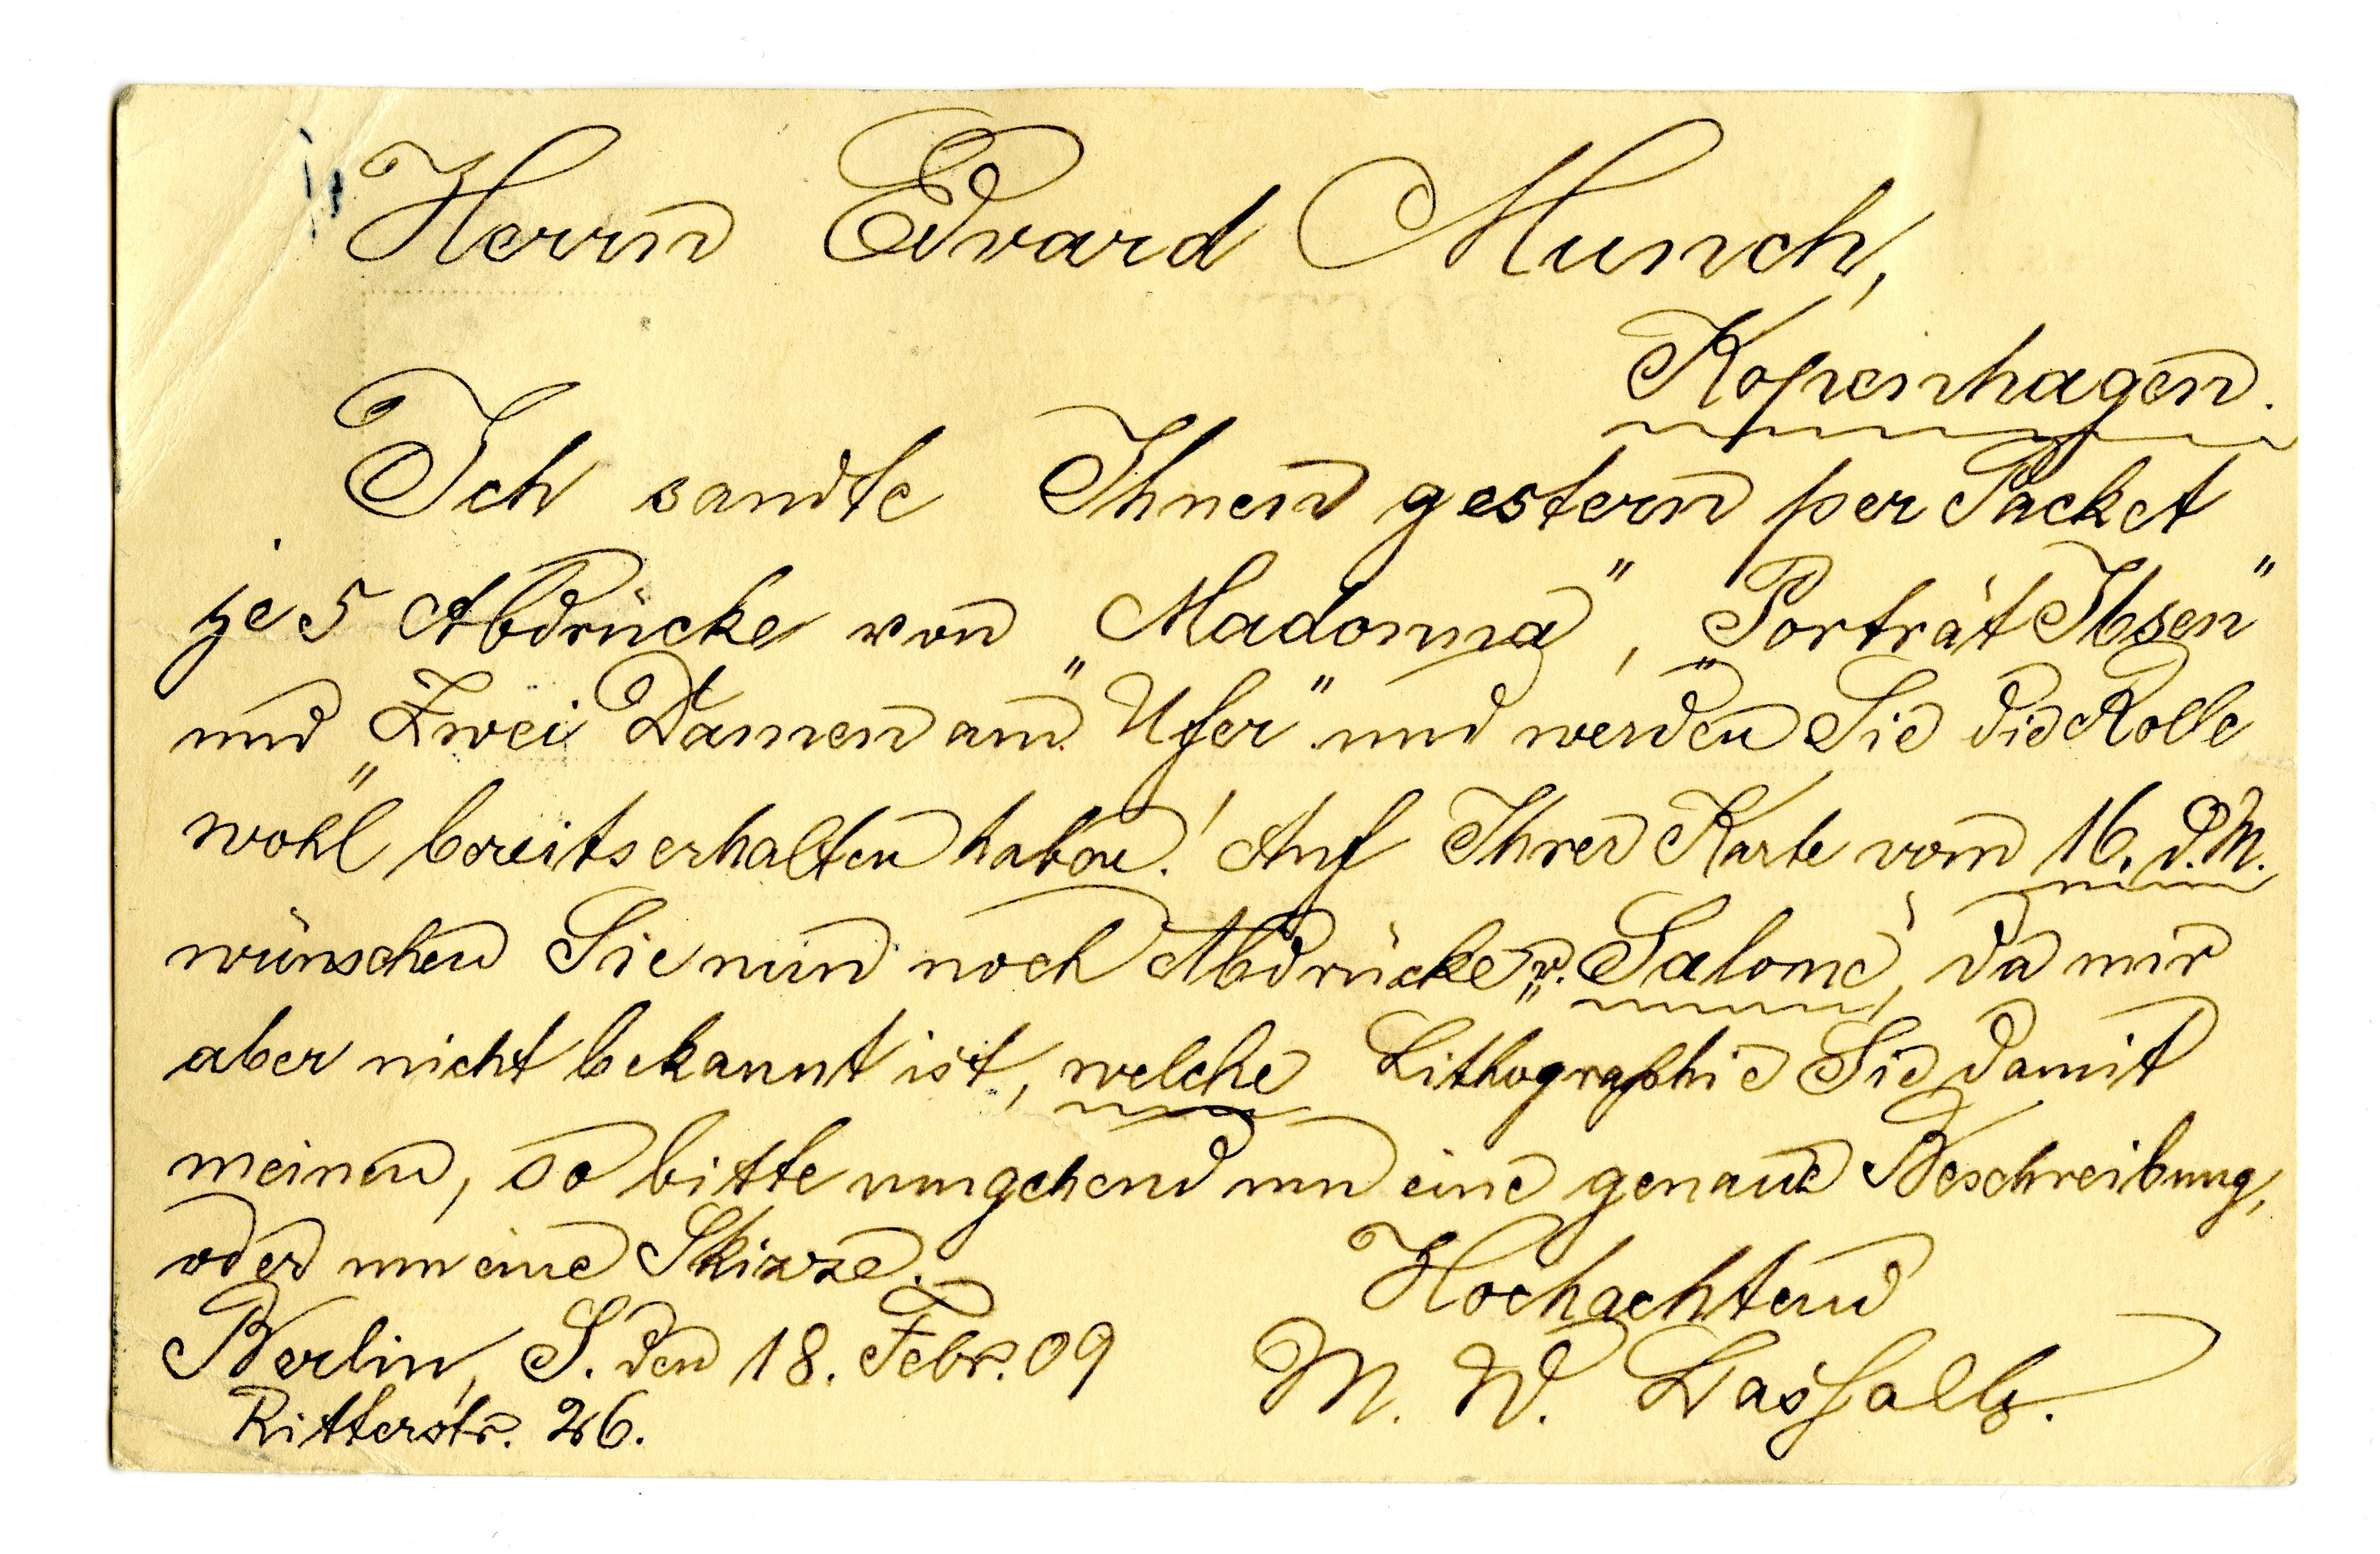 Herrn Edvard Munch,
Kopenhagen.
Ich sandte Ihnen gestern per Packet
je 5 Abdrücke von „Madonna“, „Porträt Ibsen“
und „Zwei Damen am Ufer“ und werden Sie die Rolle
wohl bereits erhalten haben! Auf Ihrer Karte vom 16. d. M.
wünschen Sie nun noch Abdrücke v. „Salomé“, da mir
aber nicht bekannt ist, welche Lithographie Sie damit
meinen, so bitte umgehend um eine genaue Beschreibung,
oder um eine Skizze.
Hochachtend
Berlin, S. den 18. Febr. 09
M. W. Lassally.
Ritterstr. 26.